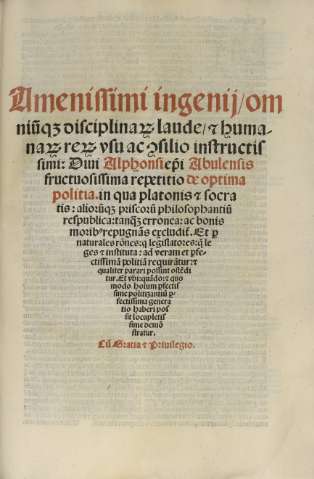 Amenissimi ingenij/om
niūqꝫ disciplinaꝝ laude/⁊ huma-
naꝝ reꝝ vsu ac ꝯsilio instructis
simi: Diui Alphonsi ep̄i Abulensis
fructuosissima repetitio de optima
politia. in qua platonis ⁊ socra
tis: aliorūqꝫ priscorū philosophantiū
respublica: tanqꝫ erronea: ac bonis
moribꝰ repugnās excludit̄. Et ꝑ
naturales rōnes: q̄ legislatores: q̄ le
ges ⁊ instituta: ad veram et ꝑfe-
ctissimā politiā requirātur: ⁊
qualiter parari possint ostēdi
tur. Et vbi: quādo: ⁊ quo
modo hoīum ꝑfectis
sime politizantiū ꝑ
fectissima genera
tio haberi pos
sit locupletis
sime demō
stratur.
Cū Gratia ⁊ Priuilegio.